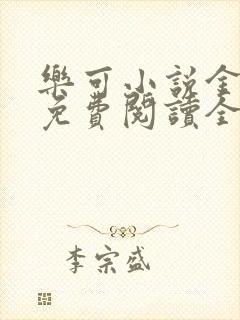 樂可小說全
免費閱讀全
李宗盛